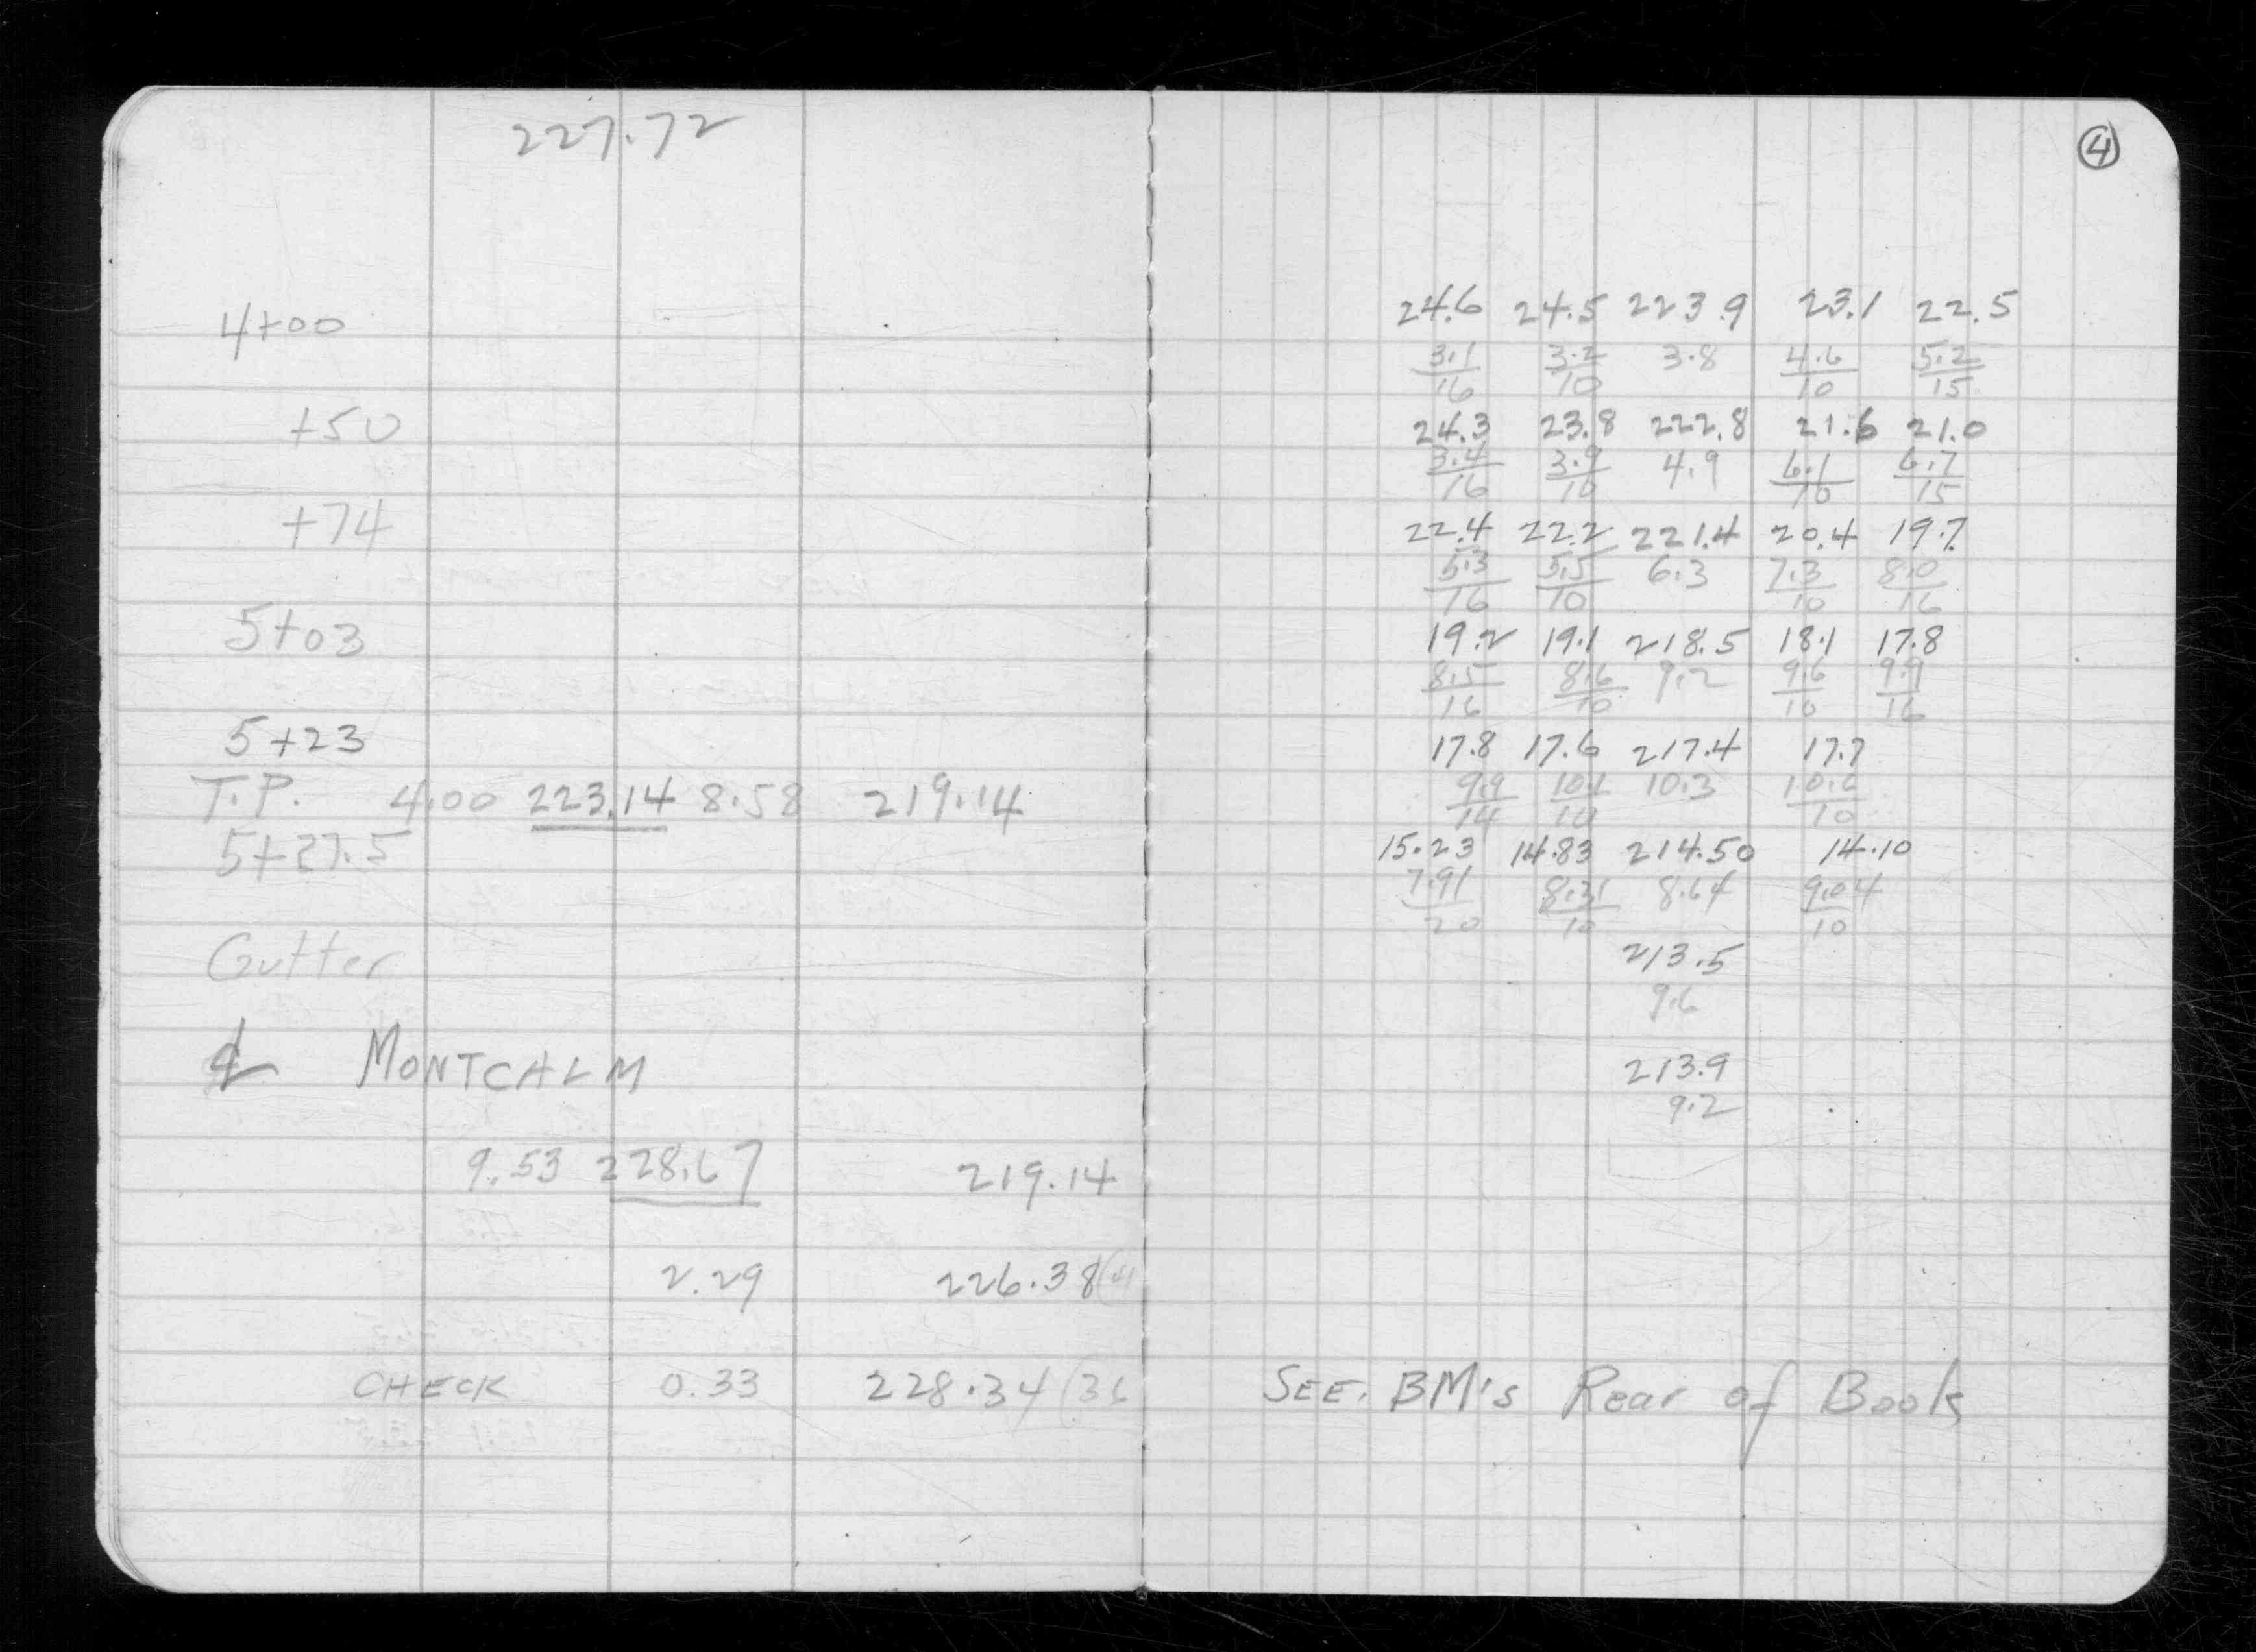 227.72
4+00
+50
+74
5+03
5+23
T.P. 4.00 223.14 8.58 219.14
5+27.5
Gutter
℄ MONTCALM
9.53 228.67 219.14
2.29 226.38
CHECK 0.33 228.34 (36
4
24.6 24.5 223.9 23.1 22.5
3.1 3.2 3.8 4.6 5.2
16 10 10 15
24.3 23.8 222.8 21.6 21.0
3.4 3.9 4.9 6.1 6.7
16 10 10 15
22.4 22.2 221.4 20.4 19.7
5.3 5.5 6.3 7.3 8.0
16 10 10 16
19.2 19.1 218.5 18.1 17.8
8.5 8.6 9.2 9.6 9.9
16 10 10 16
17.8 17.6 217.4 17.7
9.9 10.1 10.3 10.6
14 10 10
15.23 14.83 214.50 14.10
7.91 8.31 8.64 9.04
20 10 10
213.5
9.6
213.9
9.2
SEE. BM's Rear of Book